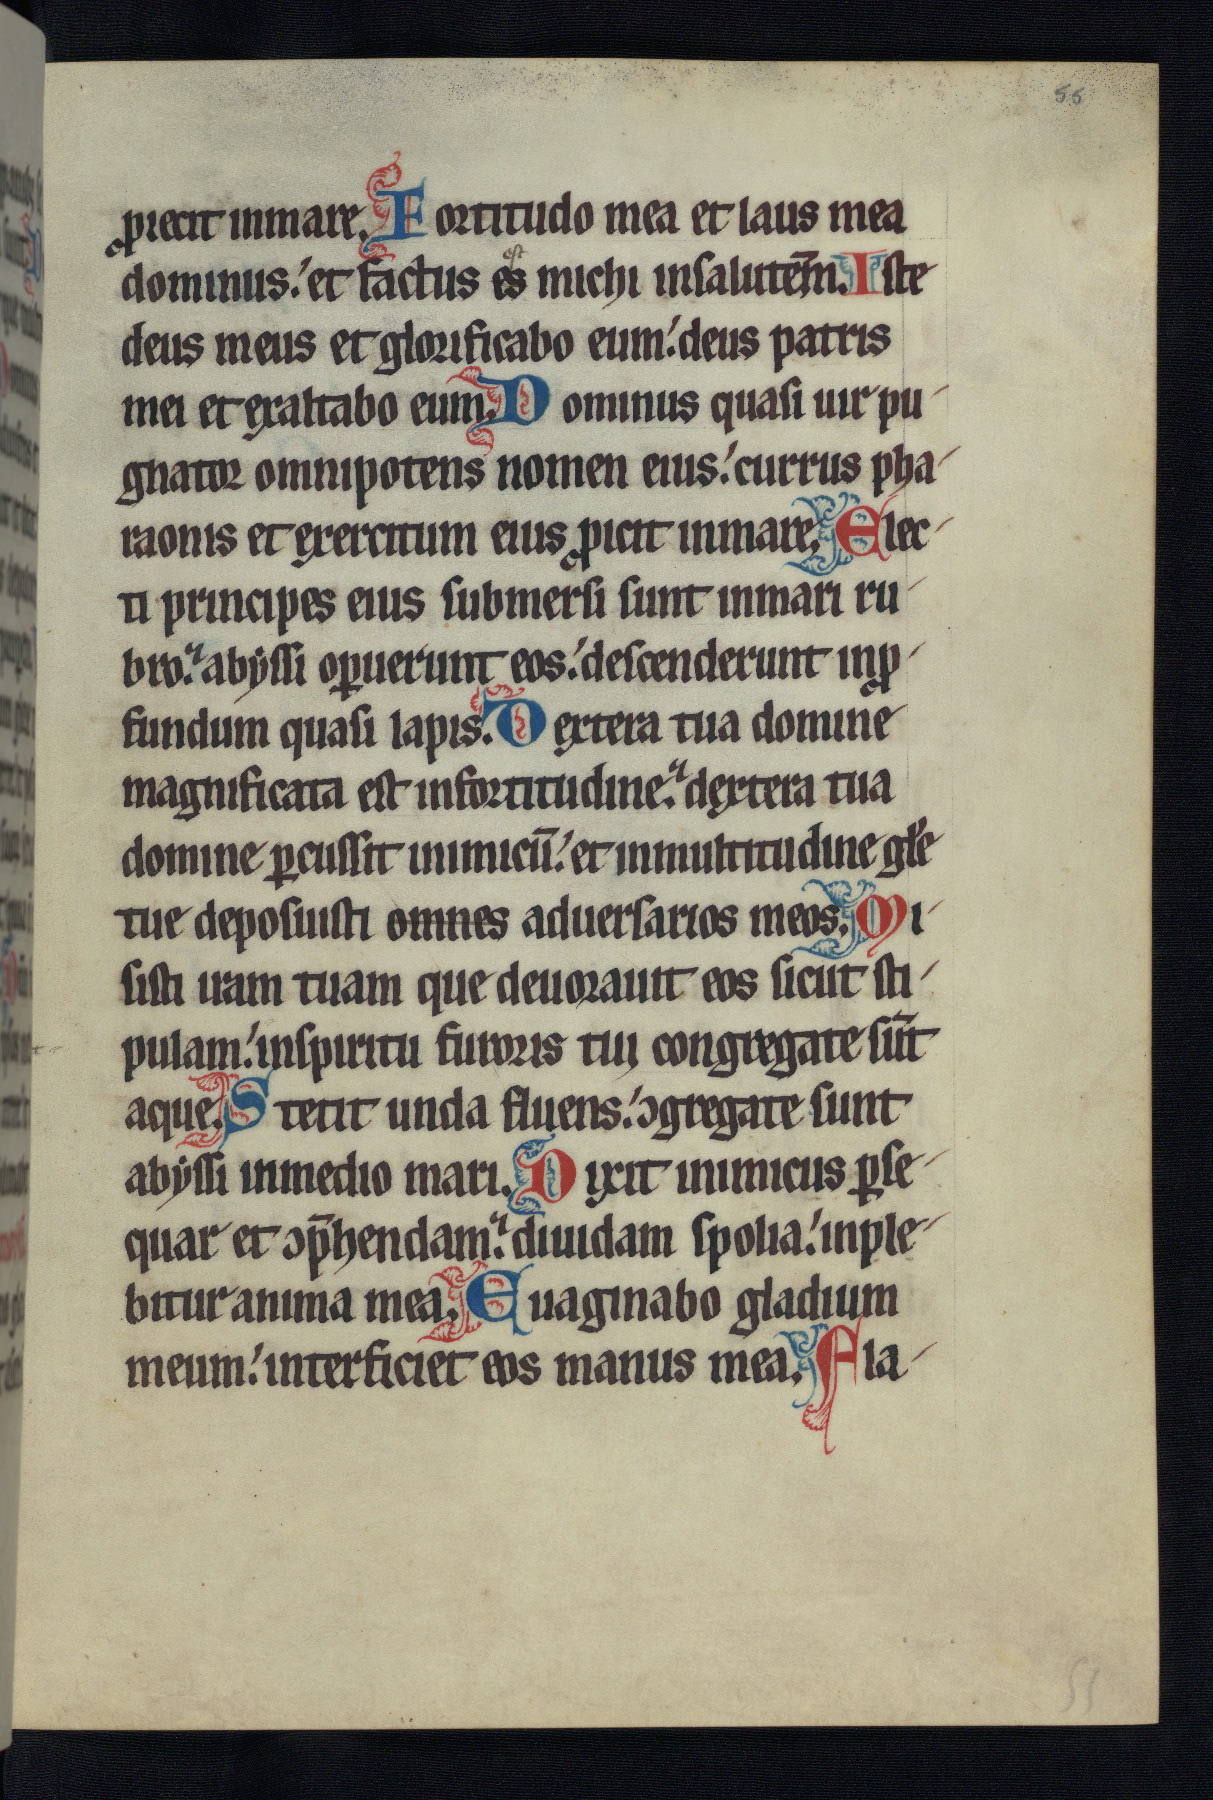 55
ꝓiecit inmare. Fortitudo mea et laus mea
est
dominus: et factus es michi insalutem̄. Iste
deus meus et glorificabo eum: deus patris
mei et exaltabo eum. Dominus quasi uir pu-
gnator omnipotens nomen eius: currus pha-
raonis et exercitum eius ꝓicit inmare. Elec-
ti principes eius submersi sunt inmari ru-
bro: abyssi oꝑuerunt eos: descenderunt inꝓ-
fundum quasi lapis. Dextera tua domine
magnificata est infortitudine: dextera tua
domine ꝑcussit inimicū: et inmultitudine gl'e
tue deposuisti omnes aduersarios meos. Mi-
sisti iram tuam que deuorauit eos sicut sti-
pulam: inspiritu furoris tui congregate sūt
aque. Stetit unda fluens: ꝯgregate sunt
abyssi inmedio mari. Dixit inimicus ꝑse-
quar et ꝯp̄hendam: diuidam spolia: inple-
bitur anima mea. Euaginabo gladium
meum: interficiet eos manus mea. Fla-